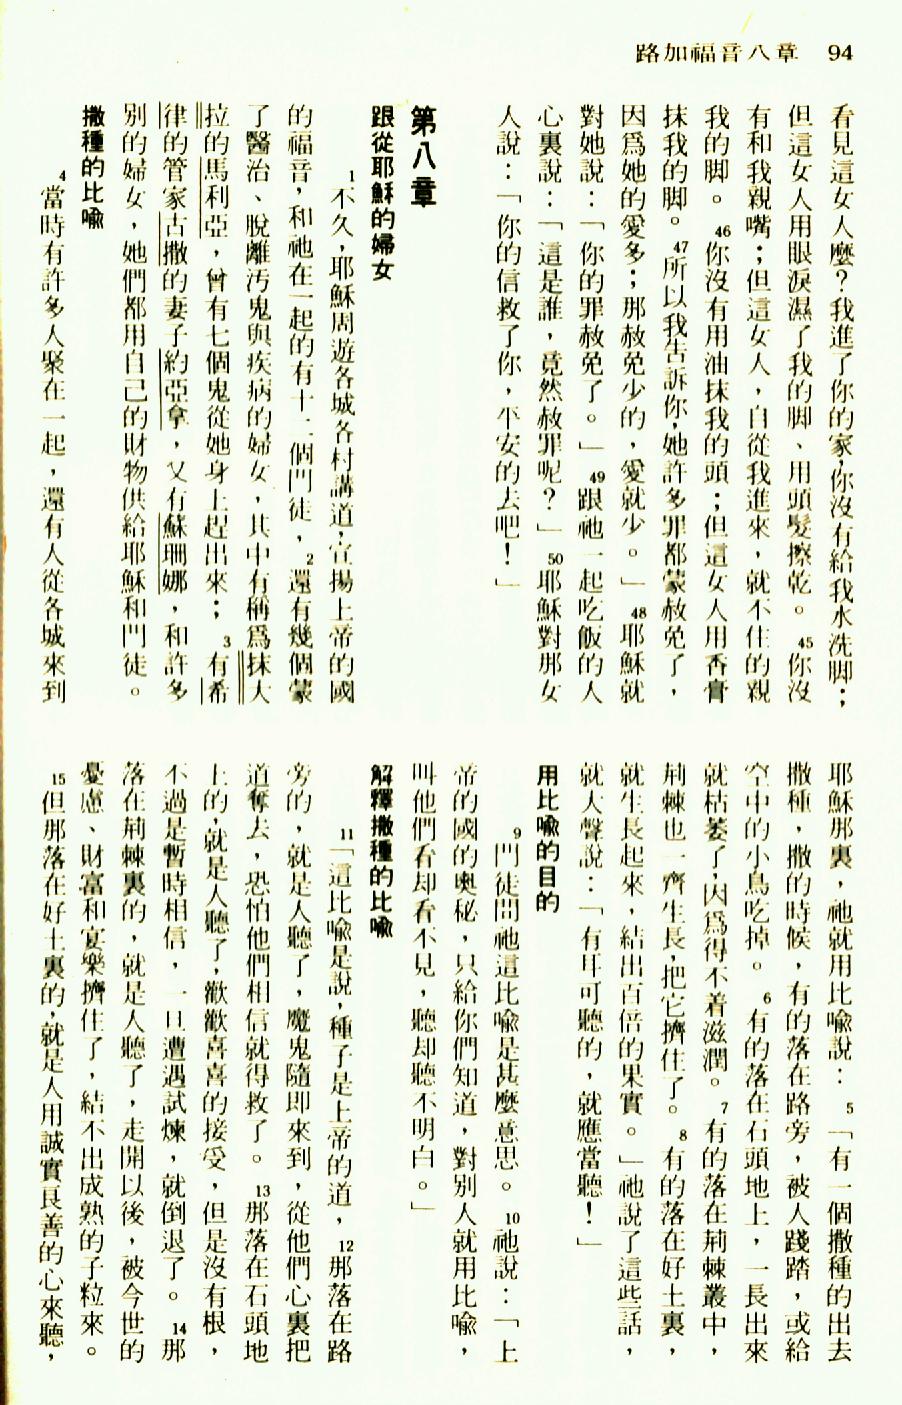 路加福音八章　94
看見這女人麼？我進了你的家，你沒有給我水洗脚；
但這女人用眼淚濕了我的脚、用頭髮擦乾。45你沒
有和我親嘴；但這女人，自從我進來，就不住的親
我的脚。46你沒有用油抹我的頭；但這女人用香膏
抹我的脚。47所以我告訴你，她許多罪都蒙赦免了，
因爲她的愛多；那赦免少的，愛就少。」48耶穌就
對她說：「你的罪赦免了。」49跟祂一起吃飯的人
心裏說：「這是誰，竟然赦罪呢？」50耶穌對那女
人說：「你的信救了你，平安的去吧！」
第八章
跟從耶穌的婦女
1不久，耶穌周遊各城各村講道，宣揚上帝的國
的福音，和祂在一起的有十二個門徒，2還有幾個蒙
了醫治、脫離汚鬼與疾病的婦女，其中有稱爲抹大
拉的馬利亞，曾有七個鬼從她身上趕出來；3有希
律的管家古撒的妻子約亞拿，又有蘇珊娜，和許多
別的婦女，她們都用自己的財物供給耶穌和門徒。
撒種的比喩
4當時有許多人聚在一起，還有人從各城來到
耶穌那裏，祂就用比喩說：5「有一個撒種的出去
撒種，撒的時候，有的落在路旁，被人踐踏，或給
空中的小鳥吃掉。6有的落在石頭地上，一長出來
就枯萎了，因爲得不着滋潤。7有的落在荆棘叢中，
荆棘也一齊生長，把它擠住了。8有的落在好土裏，
就生長起來，結出百倍的果實。」祂說了這些話，
就大聲說：「有耳可聽的，就應當聽！」
用比喩的目的
9門徒問祂這比喩是甚麼意思。10祂說：「上
帝的國的奧秘，只給你們知道，對別人就用比喩，
叫他們看却看不見，聽却聽不明白。」
解釋撒種的比喩
11「這比喩是說，種子是上帝的道，12那落在路
旁的，就是人聽了，魔鬼隨即來到，從他們心裏把
道奪去，恐怕他們相信就得救了。13那落在石頭地
上的，就是人聽了，歡歡喜喜的接受，但是沒有根，
不過是暫時相信，一旦遭遇試煉，就倒退了。14那
落在荆棘裏的，就是人聽了，走開以後，被今世的
憂慮、財富和宴樂擠住了，結不出成熟的子粒來。
15但那落在好土裏的，就是人用誠實良善的心來聽，